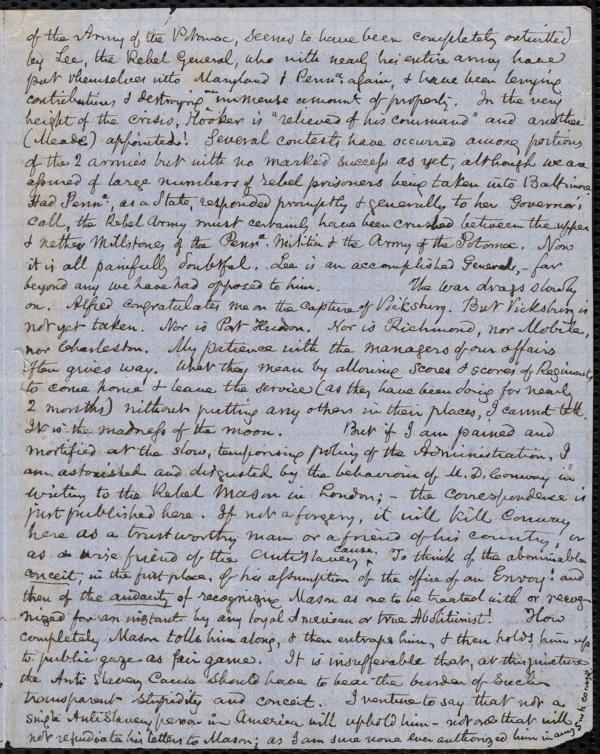 of the Army of the Potomac, seems to have been completely outwitted
by Lee, the Rebel General, who with nearly his entire army have
put themselves into Maryland & Penna. again, & have been levying
contributions & destroying an immense amount of property. In the very
height of the crisis, Hooker is "relieved of his command" and another
(Meade) appointed! Several contests have occurred among portions
of the 2 armies but with no marked success as yet, although we are
assured of large numbers of rebel prisoners being taken into Baltimore.
Had Penna., as a State, responded promptly & generally to her Governor's
call, the Rebel Army must certainly have been crushed between the upper
& nether Millstones of the Penna. Militia & the Army of the Potomac. Now
it is all painfully doubtful. Lee is an accomplished General, - far
beyond any we have had opposed to him. The war drags slowly
on. Alfred congratulates me on the capture of Vicksburg. But Vicksburg is
not yet taken. Nor is Port Hudson. Nor is Richmond, nor Mobile,
nor Charleston. My patience with the managers of our affairs
often gives way. What they mean by allowing scores & scores of Regiments
to come home & leave the service (as they have been doing for nearly
2 months) without putting any others in their places, I cannot tell.
It is the madness of the moon. But if I am pained and
mortified at the slow, temporising policy of the Administration, I
am astonished and disgusted by the behaviour of M. D. Conway in
writing to the Rebel Mason in London; - the correspondence is
just published here. If not a forgery, it will kill Conway
here as a trustworthy man or a friend of his country, or
as a wise friend of the Antislavery cause. To think of the abominable
conceit, in the first place, of his assumption of the office of an Envoy! and
then of the audacity of recognizing Mason as one to be treated with or recog-
nized for an instant by any loyal American or true Abolitionist! How
completely Mason tolls him along, & then entraps him, & then holds him up
to public gaze as fair game. It is insufferable that, at this juncture
the Anti Slavery Cause should have to bear the burden of such
transparent stupidity and conceit. I venture to say that not a
single AntiSlavery person in America will uphold him - not one that will
not repudiate his letters to Mason; as I am sure none ever authorized him in any